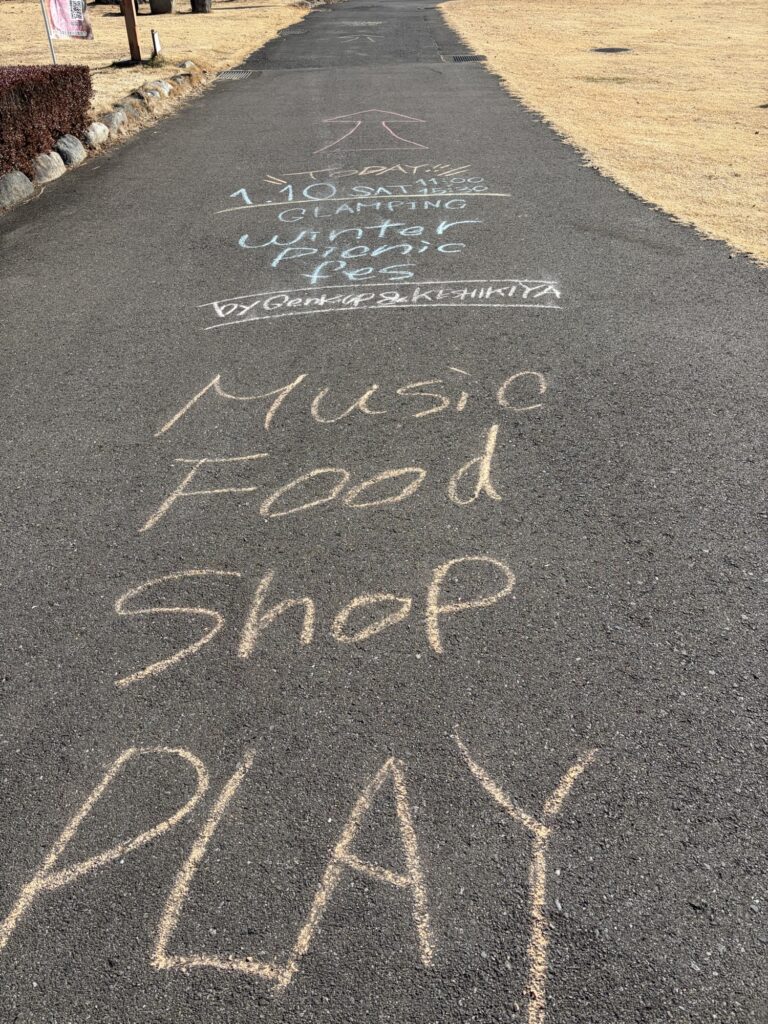 TODAY!!!
1.10 SAT 11:00
15:30
GLAMPING
winter
picnic
fes
by Genk up & KISHIKIYA
Music
Food
Shop
PLAY